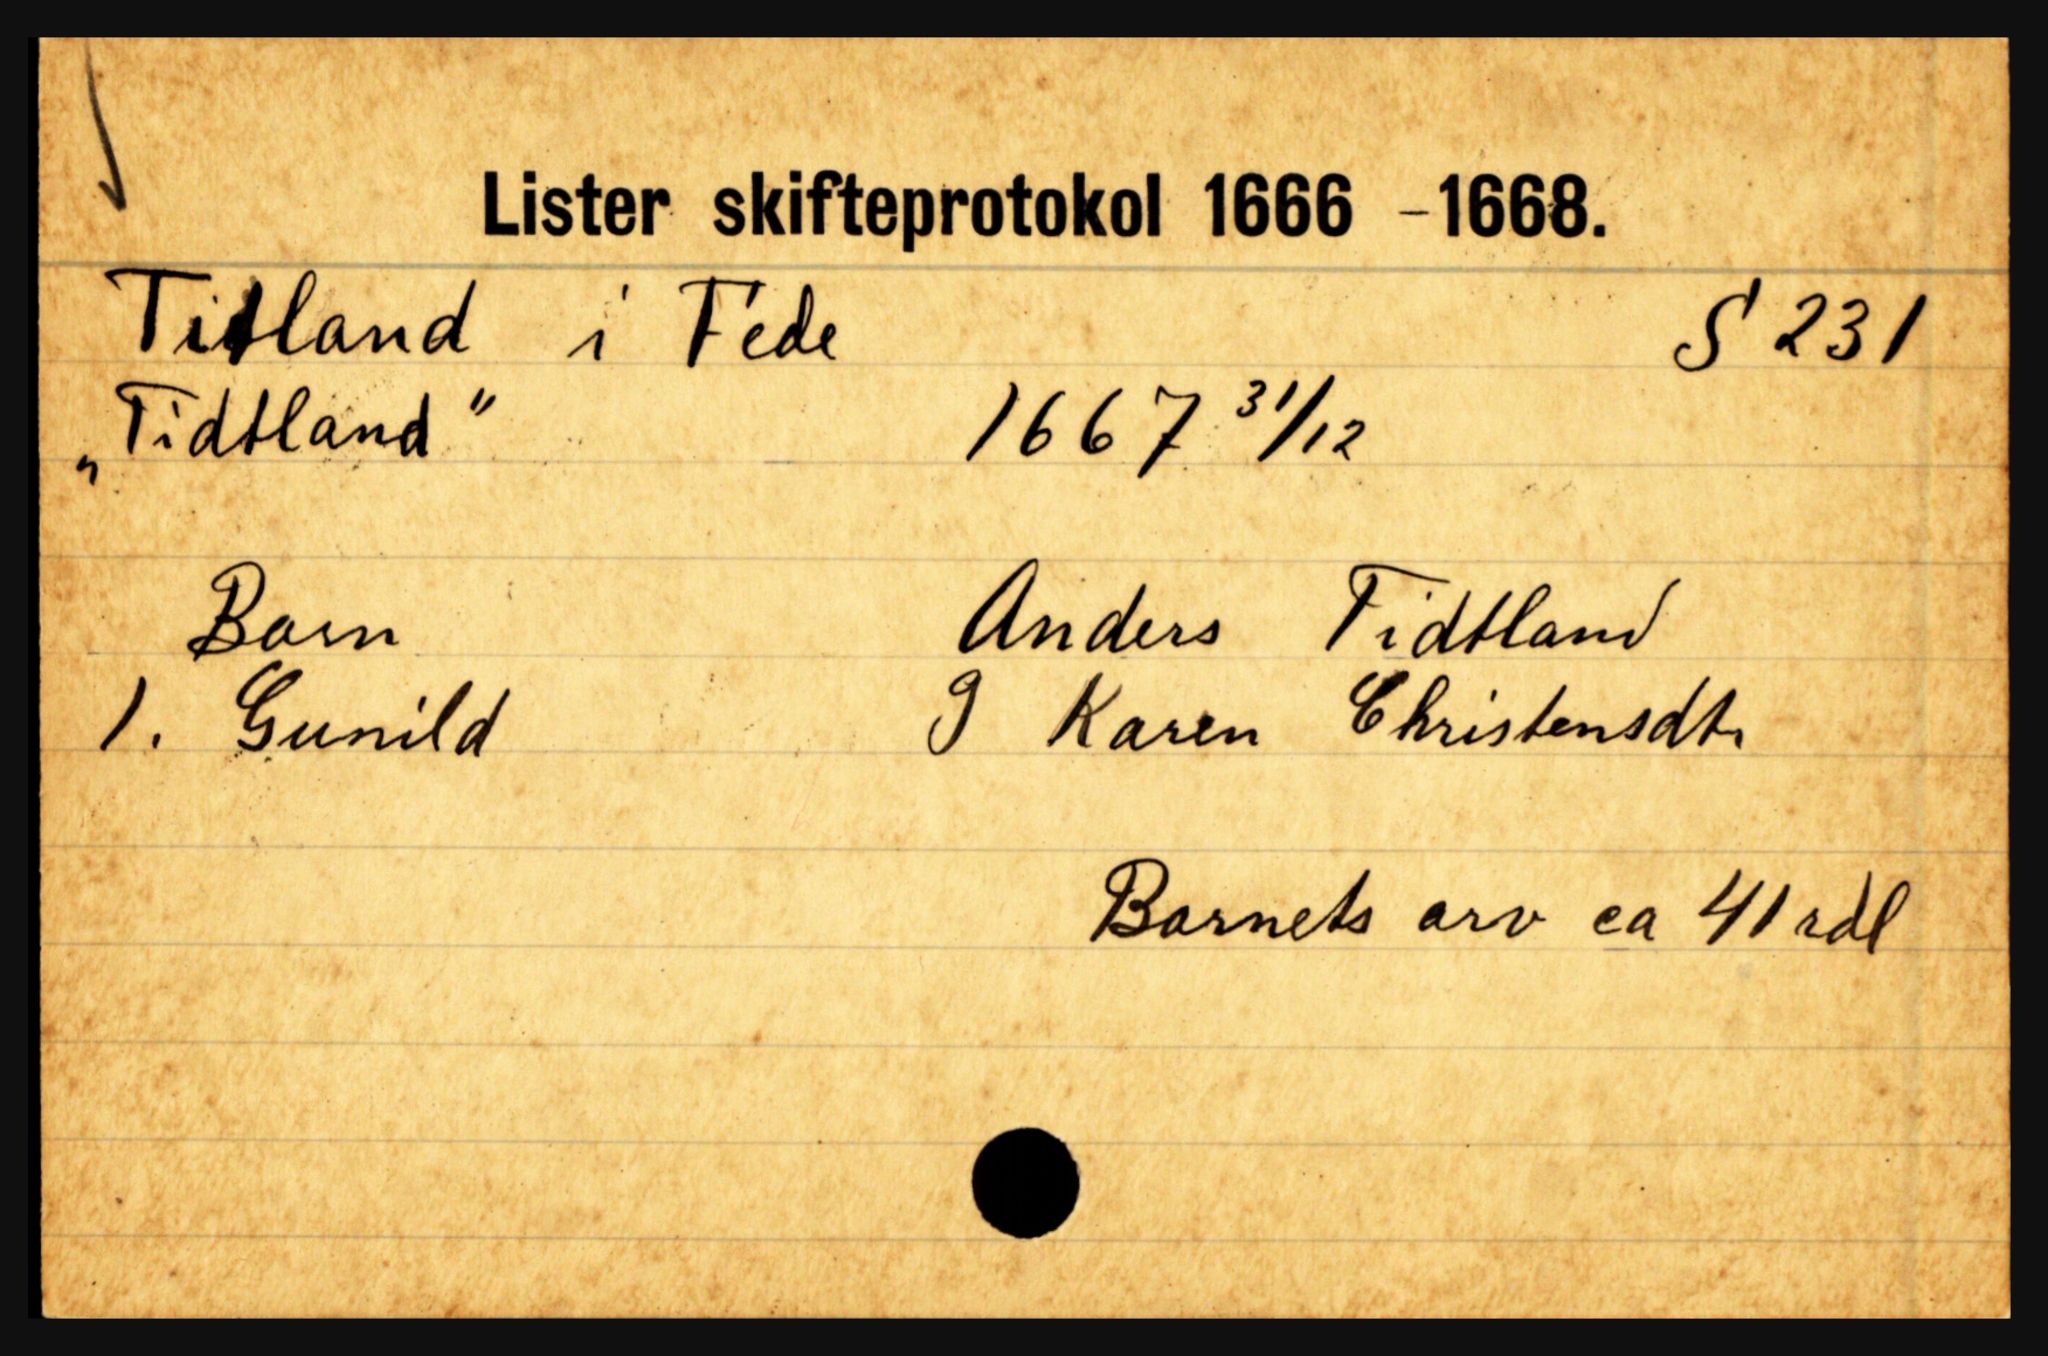 Lister skifteprotokol 1666 - 1668.
Titland i Fede S 231
„Tidtland" 1667 31/12
Barn Anders Tidtland
1. Gunild G Karen Christensdtr
Barnets arv ca 41 rdl